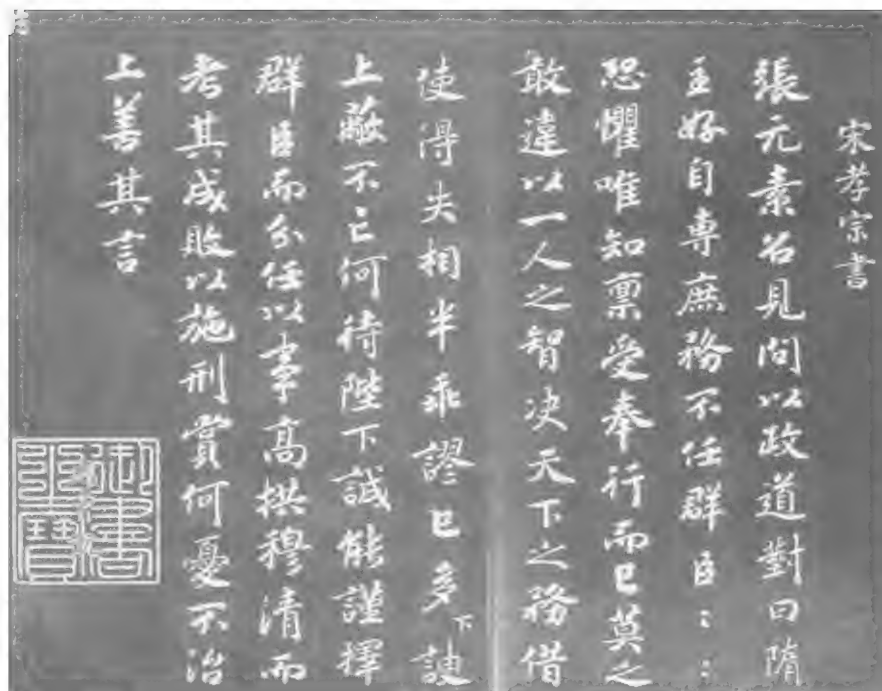 宋孝宗書
張元素名見問以政道對曰隋
主好自専庶務不任群臣〻〻
恐懼唯知禀受奉行而已莫之
敢違以一人之智决天下之務借
使得失相半乖謬已多下諛
上蔽不亡何待陛下誠能謹擇
群臣而分任以事高拱穆清而
考其成敗以施刑賞何憂不治
上善其言
御書
之寶